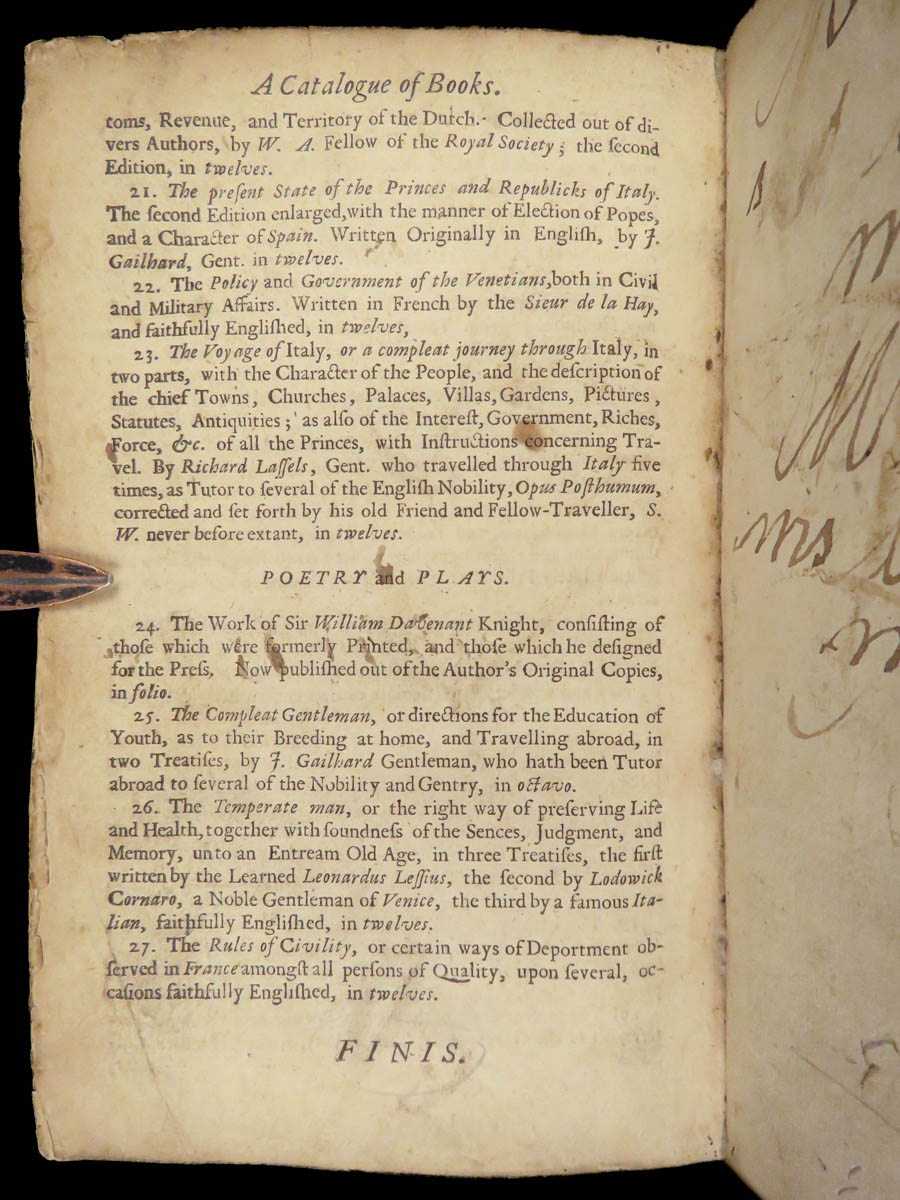 A Catalogue of Books.
toms, Revenue, and Territory of the Dutch. Collected out of di-
vers Authors, by W. A. Fellow of the Royal Society; the ſecond
Edition, in twelves.
21. The preſent State of the Princes and Republicks of Italy.
The ſecond Edition enlarged, with the manner of Election of Popes,
and a Character of Spain. Written Originally in Engliſh, by J.
Gailhard, Gent. in twelves.
22. The Policy and Government of the Venetians, both in Civil
and Military Affairs. Written in French by the Sieur de la Hay,
and faithfully Engliſhed, in twelves,
23. The Voyage of Italy, or a compleat journey through Italy, in
two parts, with the Character of the People, and the deſcription of
the chief Towns, Churches, Palaces, Villas, Gardens, Pictures,
Statutes, Antiquities; as alſo of the Intereſt, Government, Riches,
Force, &c. of all the Princes, with Inſtructions concerning Tra-
vel. By Richard Laſſels, Gent. who travelled through Italy five
times, as Tutor to ſeveral of the Engliſh Nobility, Opus Poſthumum,
corrected and ſet forth by his old Friend and Fellow-Traveller, S.
W. never before extant, in twelves.
POETRY and PLAYS.
24. The Work of Sir William Davenant Knight, conſiſting of
thoſe which were formerly Printed, and thoſe which he deſigned
for the Preſs. Now publiſhed out of the Author's Original Copies,
in folio.
25. The Compleat Gentleman, or directions for the Education of
Youth, as to their Breeding at home, and Travelling abroad, in
two Treatiſes, by J. Gailhard Gentleman, who hath been Tutor
abroad to ſeveral of the Nobility and Gentry, in octavo.
26. The Temperate man, or the right way of preſerving Life
and Health, together with ſoundneſs of the Sences, Judgment, and
Memory, unto an Entream Old Age, in three Treatiſes, the firſt
written by the Learned Leonardus Leſſius, the ſecond by Lodowick
Cornaro, a Noble Gentleman of Venice, the third by a famous Ita-
lian, faithfully Engliſhed, in twelves.
27. The Rules of Civility, or certain ways of Deportment ob-
ſerved in France amongſt all perſons of Quality, upon ſeveral, oc-
caſions faithfully Engliſhed, in twelves.
FINIS.